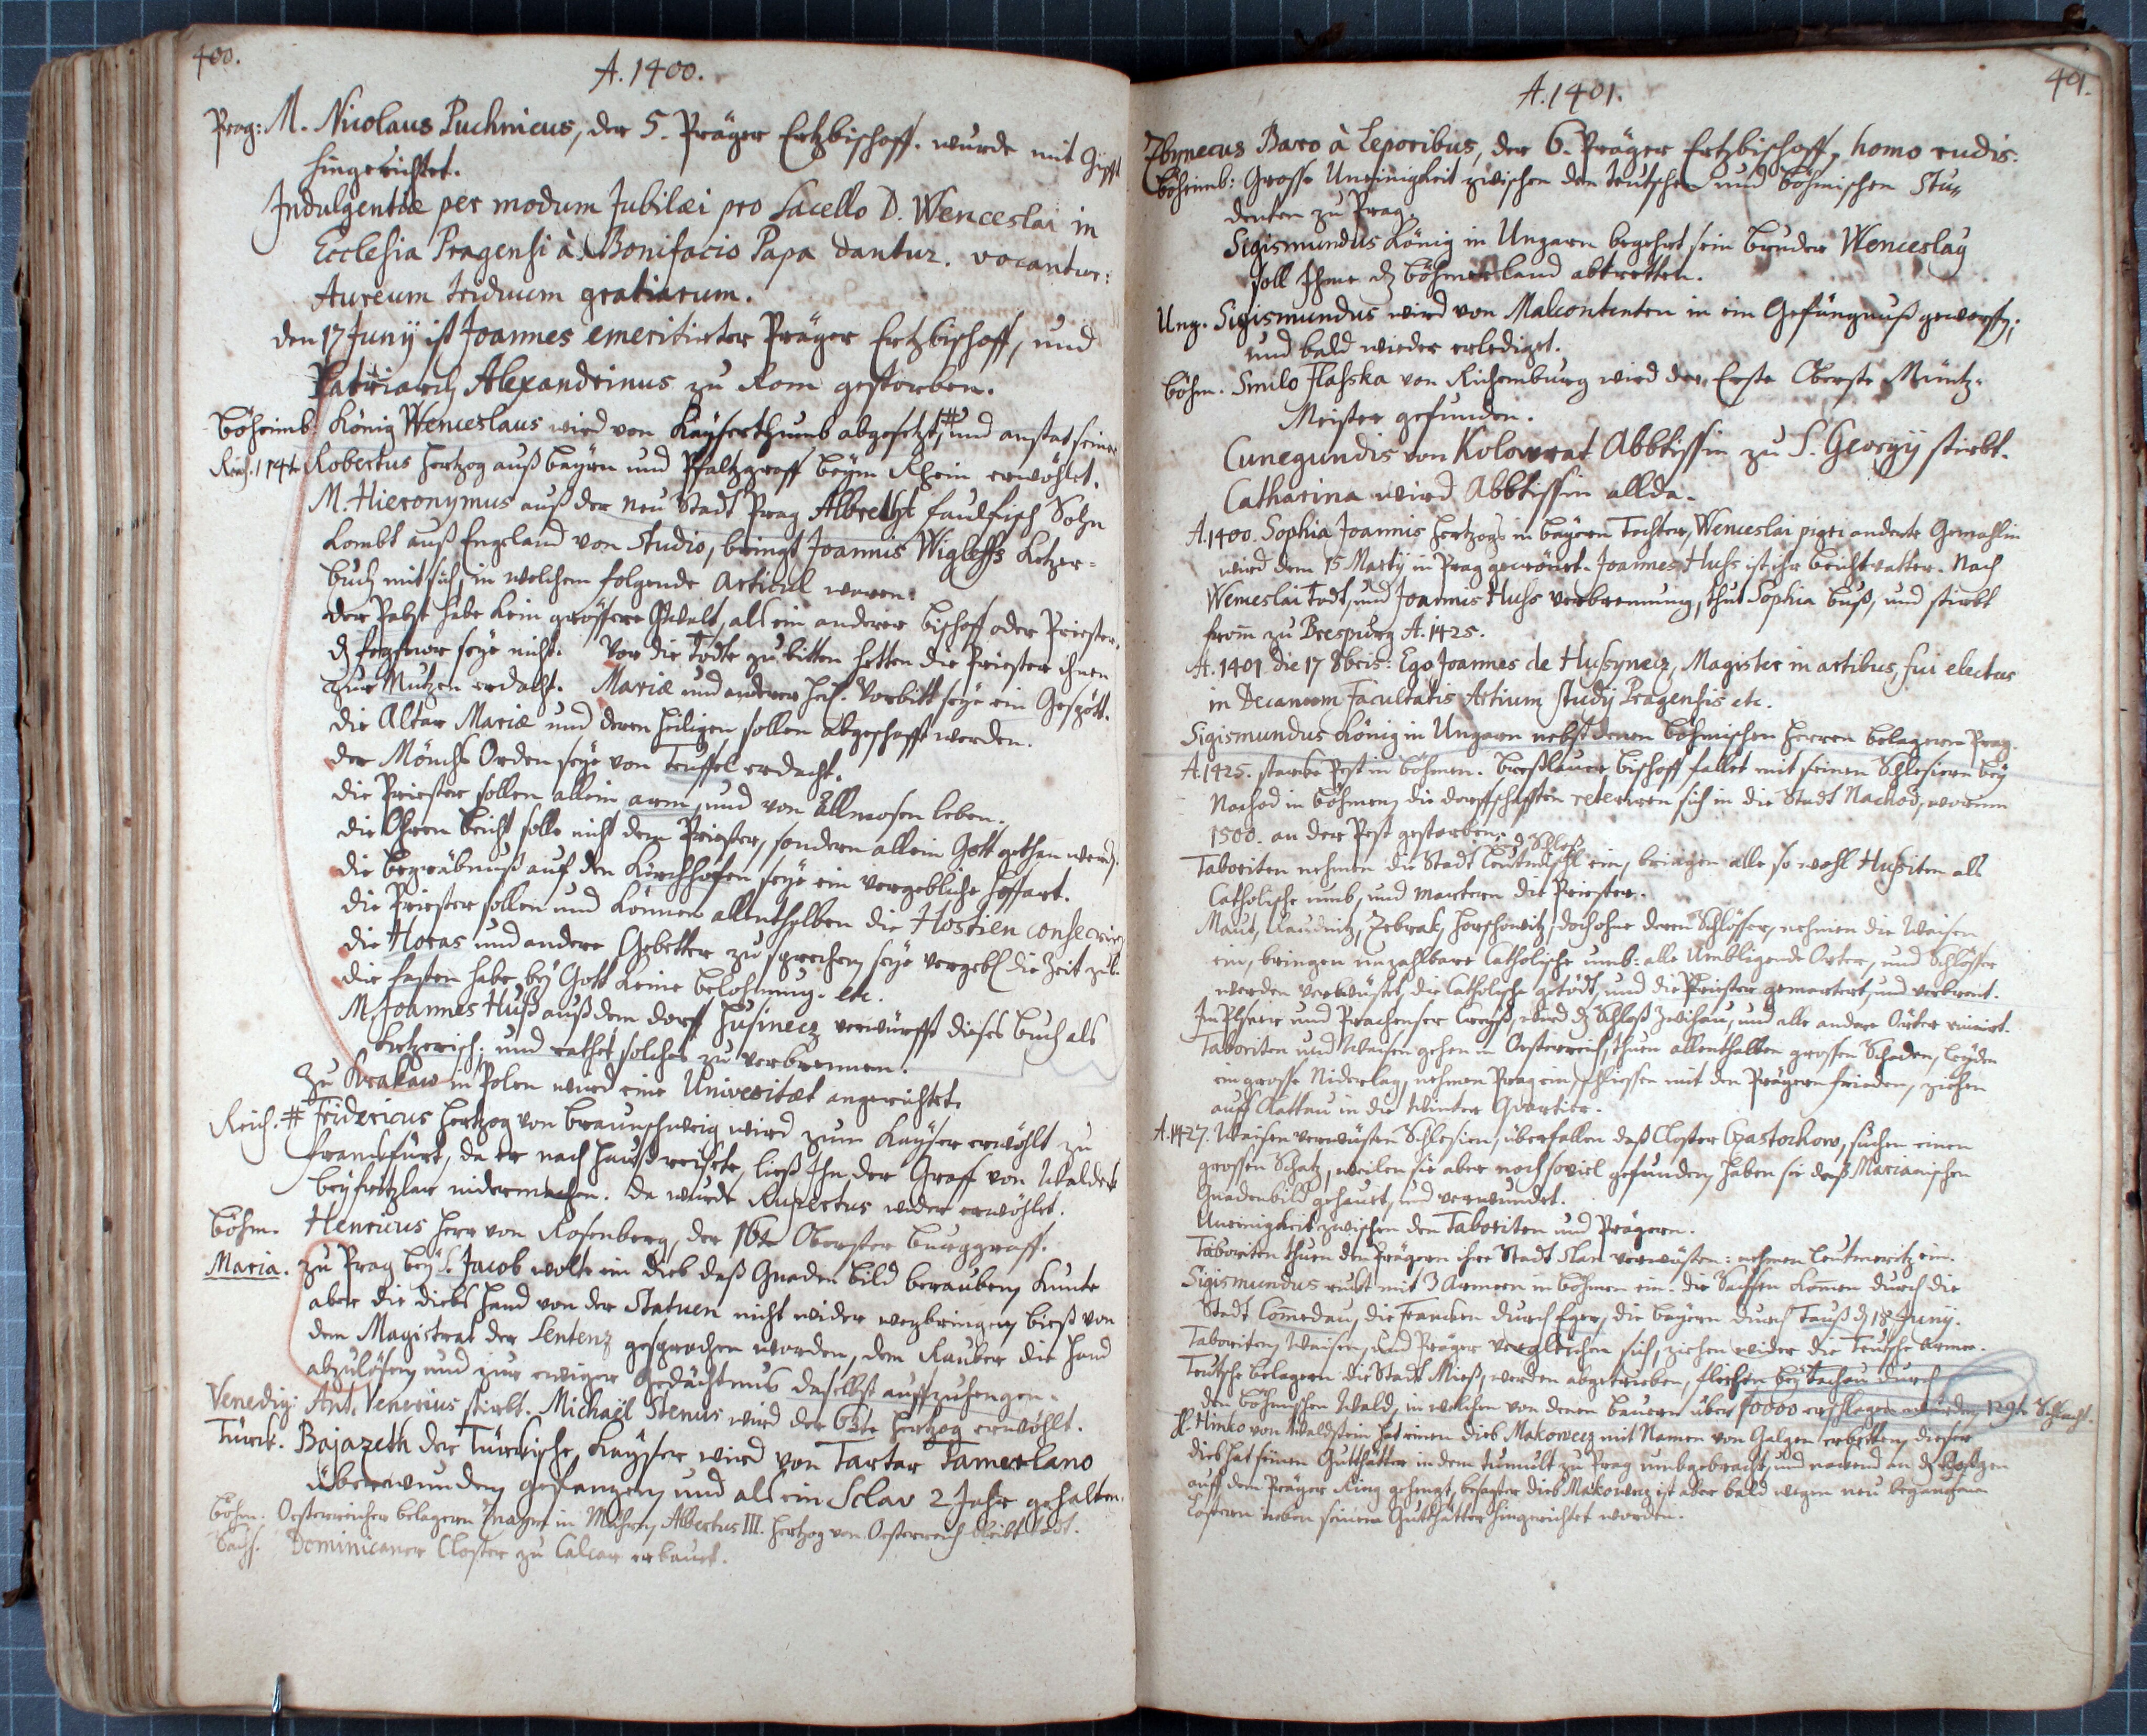 400.
A. 1400.
Prag: M. Nicolaus Puchnicus, der 5. Präger Ertzbischoff. wurde mit Gifft
hingerichtet.
Indulgentiæ per modum Jubilæi pro Sacello D. Wenceslai in
Ecclesia Pragensi à Bonifacio Papa dantur. vocantur:
Aureum triduum gratiarum.
den 17 Junÿ ist Joannes emeritirter Präger Ertzbischoff, und
Patriarch Alexandrinus zu Rom gestorben.
Böheimb: König Wenceslaus wird von Kaÿserthumb abgesetzt, # und anstat seiner
Reich. Robertus Hertzog auß Baÿrn und Pfaltzgraff beÿm Rhein erwöhlet.
M. Hieronymus auß der Neu Stadt Prag Albrecht Faulfisch Sohn
kombt auß Engeland von Studio, bringt Joannis Wigleffs Ketzer-
buch mit sich, in welchem folgende Articul waren:
der Pabst habe kein grössere Gwalt, als ein anderer Bischoff oder Priester.
dz Fegfewr seÿe nicht. Vor die Todte zu bitten hetten die Priester ihnen
zur Nutzen erdacht. Mariæ und anderer Heÿl. Vorbitt seÿe ein Gespött.
die Altar Mariæ und deren Heiligen sollen abgeschafft werden.
der Mönchs Orden seÿe von Teuffel erdacht.
die Priester sollen allein arm, und von Allmosen leben.
die Ohren Beicht solle nicht dem Priester, sondern allein Gott gethan werd.
die Begräbnuß auf den Kirchhöfen seÿe ein vergebliche Hoffart.
die Priester sollen und können allenthalben die Hostien consecrirn
die Horas und andere Gebetter zu sprechen, seÿe vergebl. die Zeit zub.
die Fasten habe beÿ Gott keine Belohnung. etc.
M. Joannes Huß auß dem Dorff Husinecz verwürfft dieses Buch als
ketzerisch, und rathet solches zu verbrennen.
Zu Krakaw in Polen wurd eine Univesitæt angerichtet.
Reich. # Fridericus Hertzog von Braunschweig wird zum Kaÿser erwöhlt zu
Franckfurt, da er nach Hauß reisete, ließ Ihn der Graff von Waldek
beÿ Fritzlar nidermachen. da wurde Rupertus wider erwöhlet.
Böhm. Henricus Herr von Rosenberg, der 16te Oberster Burggraff.
Maria. zu Prag beÿ S. Jacob wolte ein Dieb daß Gnaden Bild berauben, kunte
aber die Diebs Hand von der Statuen nicht wider wegbringen, bieß von
dem Magistrat der Sentenz gesprochen worden, dem Rauber die Hand
abzulösen, und zur ewiger Gedächtnus daselbst auffzuhengen.
Venedig: Ant. Venerius stirbt. Michaël Stenus wird der 63te Hertzog erwöhlt.
Türck. Bajazeth der Türckische Kaÿser wird von Tartar Tamerlano
überwunden, gefangen, und als ein Sclav 2 Jahr gehalten.
Böhm. Oesterreicher belagern Znaym in Mähren, Albertus III. Hertzog von Oesterreich bleibt todt.
Dominicaner Closter zu Calcar erbauet.
401.
A. 1401.
Zbynecus Baro à Leporibus, der 6. Präger Ertzbischoff, homo rudis.
Böheimb: Grosse Uneinigkeit zwischen den teutschen und böhmischen Stu-
denten zu Prag.
Sigismundus König in Ungarn begehrt sein Bruder Wenceslaq
soll Ihme dz Böhmerland abtretten.
Ung. Sigismundus wird von Malcontenten in ein Gefängnuß geworffen;
und bald wieder erlediget.
Böhm. Smilo Flasska von Richenburg wird der Erste Oberste Müntz-
Meister gefunden.
Cunegundis von Kolowrat Abbtissin zu S. Georgÿ stirbt.
Catharina wird Abbtissin allda.
A. 1400. Sophia Joannis Hertzogs in Baÿern Tochter, Wenceslai pigri anderte Gemahlin
wird dem 15 Martÿ in Prag gecrönet. Joannes Huss ist ihr Beichtvatter. Nach
Wenceslai Todt, und Joannis Huss verbrennung, thut Sophia Buß, und stirbt
from zu Prespurg A. 1425.
A. 1401 die 17 8bris: Ego Joannes de Hussynecz, Magister in artibus, fui electus
in Decanum Facultatis Artium studÿ Pragensis etc.
Sigismundus König in Ungarn nebst denen Böhmischen Herren belagern Prag.
A. 1425. starke Pest in Böhmen. Breßlauer Bischoff fallet mit seinen Schlesiern beÿ
Nachod in Böhmen, die dorffschafften reteriren sich in die Stadt Nachod, worinn
1500. an der Pest gestorben.
Taboriten nehmen die Stadt und Schloß Leutmischl ein, bringen alle so wohl Hussiten als
Catholische umb, und martern die Priester.
Maut, Raudnitz, Zebrak, Horschowitz, doch ohne deren Schlösser, nehmen die Waisen
ein, bringen unzahlbare Catholische umb: alle Umbligende Örter, und Schlösser
werden verwüstet, die Catholische getödt, und die Priester gemartert, und verbrent.
Im Pilsner und Prachenser Creÿß, wird dz Schloß Zwihau, und alle andere Örter ruinirt.
Taboriten und Waisen gehen in Oesterreich, thuen allenthalben grossen Schaden, leÿden
ein grosse Niderlag, nehmen Prag ein, schliessen mit den Prägern Frieden, ziehen
auff Klattau in die Winter Quartier.
A. 1427. Waisen verwüsten Schlesien, überfallen daß Closter Czastochow, suchen einen
grossen Schatz, weilen sie aber noch soviel gefunden, haben sie daß Marianischen
Gnadenbild gehauet, und verwundet.
Uneinigkeit zwischen den Taboriten und Prägern.
Taboriten thuen den Prägern ihre Stadt Slan verwüsten: nehmen Leutmeritz ein.
Sigismundus rukt mit 3 Armeen in Böhmen ein. die Sachsen komen durch die
Stadt Comedau, die Francken durch Eger, die Baÿern durch Tauß dz 18 Junÿ.
Taboriten, Waisen, und Präger vergleichen sich, ziehen wider die Teutsche Armee.
Teutsche belagern die Stadt Mieß, werden abgetrieben, fliehen beÿ Tachau durch
den böhmischen Wald, in welchen von denen Bauern über 10000 erschlagen wurden, 129te Schlacht.
H. Hinko von Waldstein hat einen Dieb Makowecz mit Namen von Galgen erbetten, dieser
Dieb hat seinen Gutthätter in dem tumult zu Prag umbgebracht, und nackend an dz Galgen
auff dem Präger Ring gehengt, besagter Dieb Makowecz ist aber bald wegen neu begangenen
Lastern neben seinem Gutthätter hingerichtet worden.